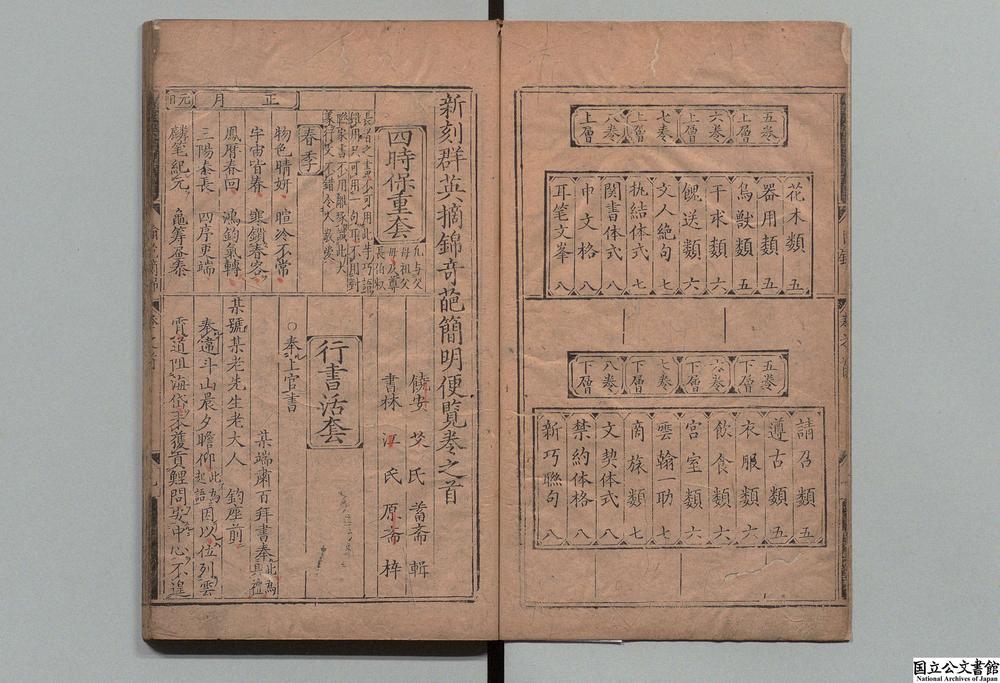 五卷上層
六卷上層
七卷上層
八卷上層
花木類 五
器用類 五
鳥獸類 五
干求類 六
餽送類 六
文人絶句 七
执結体式 七
関書体式 八
巾文格 八
耳笔文峯 八
五卷下層
六卷下層
七卷下層
八卷下層
請召類 五
遵古類 五
衣服類 六
飲食類 六
宮室類 六
雲翰一助 七
商旅類 七
文契体式 八
禁約体格 八
新巧聯句 八
新刻群英摘錦奇葩簡明便覧卷之首
饒安 艾氏 蓄斎 輯
書林 江氏 原斋 梓
四時保重套
凡与父
母祖父
母及尊
長伯叔
春季
正月
元日
物色晴妍 暄冷不常
宇宙皆春 寒鎖春容
鳳曆春回 鴻鈞氣轉
三陽泰長 四序更端
麟筆紀元 龜筭益泰
行書活套
○奉上官書
某端肅百拜書奉此為具禮
某號某老先生老大人 鈞座前
奉違斗山晨夕瞻仰此為起語因以位列雲
霄道阻海岱未獲貢鯉問安中心不遑
国立公文書館
National Archives of Japan